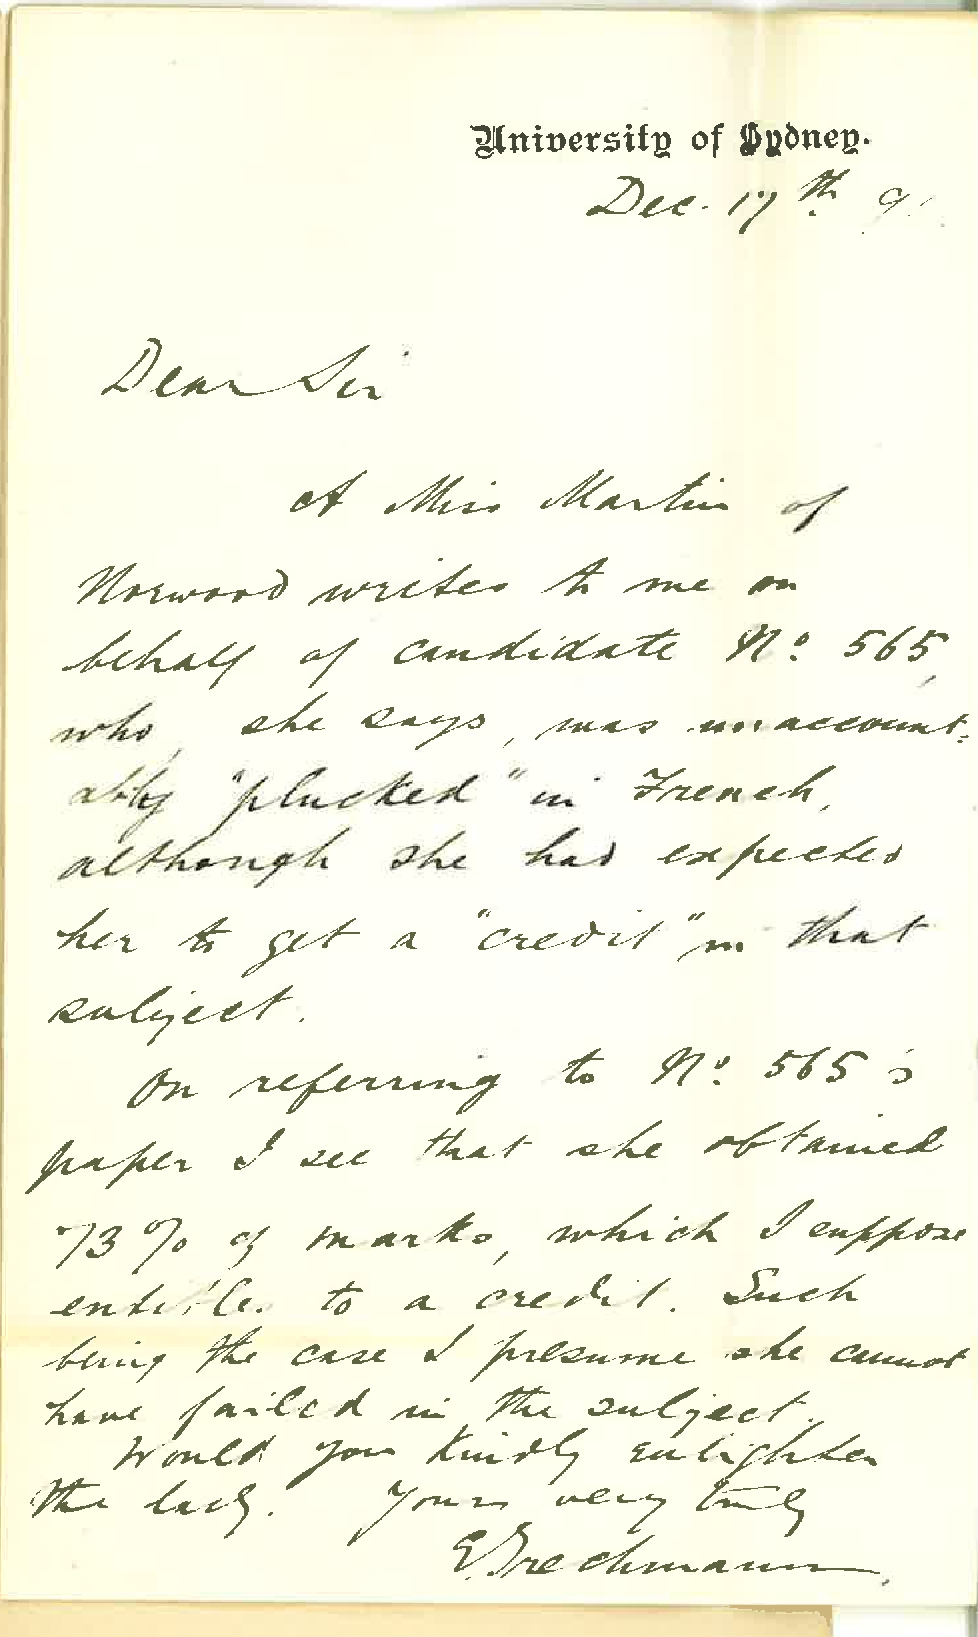 University of Sydney.
Dec. 17th 9
Dear Sir
A Miss Martin of
Norwood writes to me on
behalf of candidate No. 565,
who, she says, was unaccount=
ably "plucked" in French,
although she had expected
her to get a "credit" in that
subject.
On referring to No. 565's
paper I see that she obtained
73% of marks, which I suppose
entitles to a credit. Such
being the case I presume she cannot
have failed in the subject.
Would you kindly enlighten
the lady. Yours very truly
E. Trechmann.